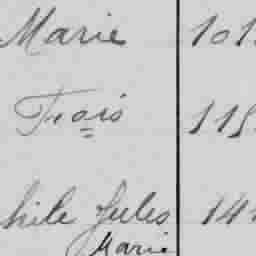 Marie 101
Frois 115
hile Jules 141
Marie